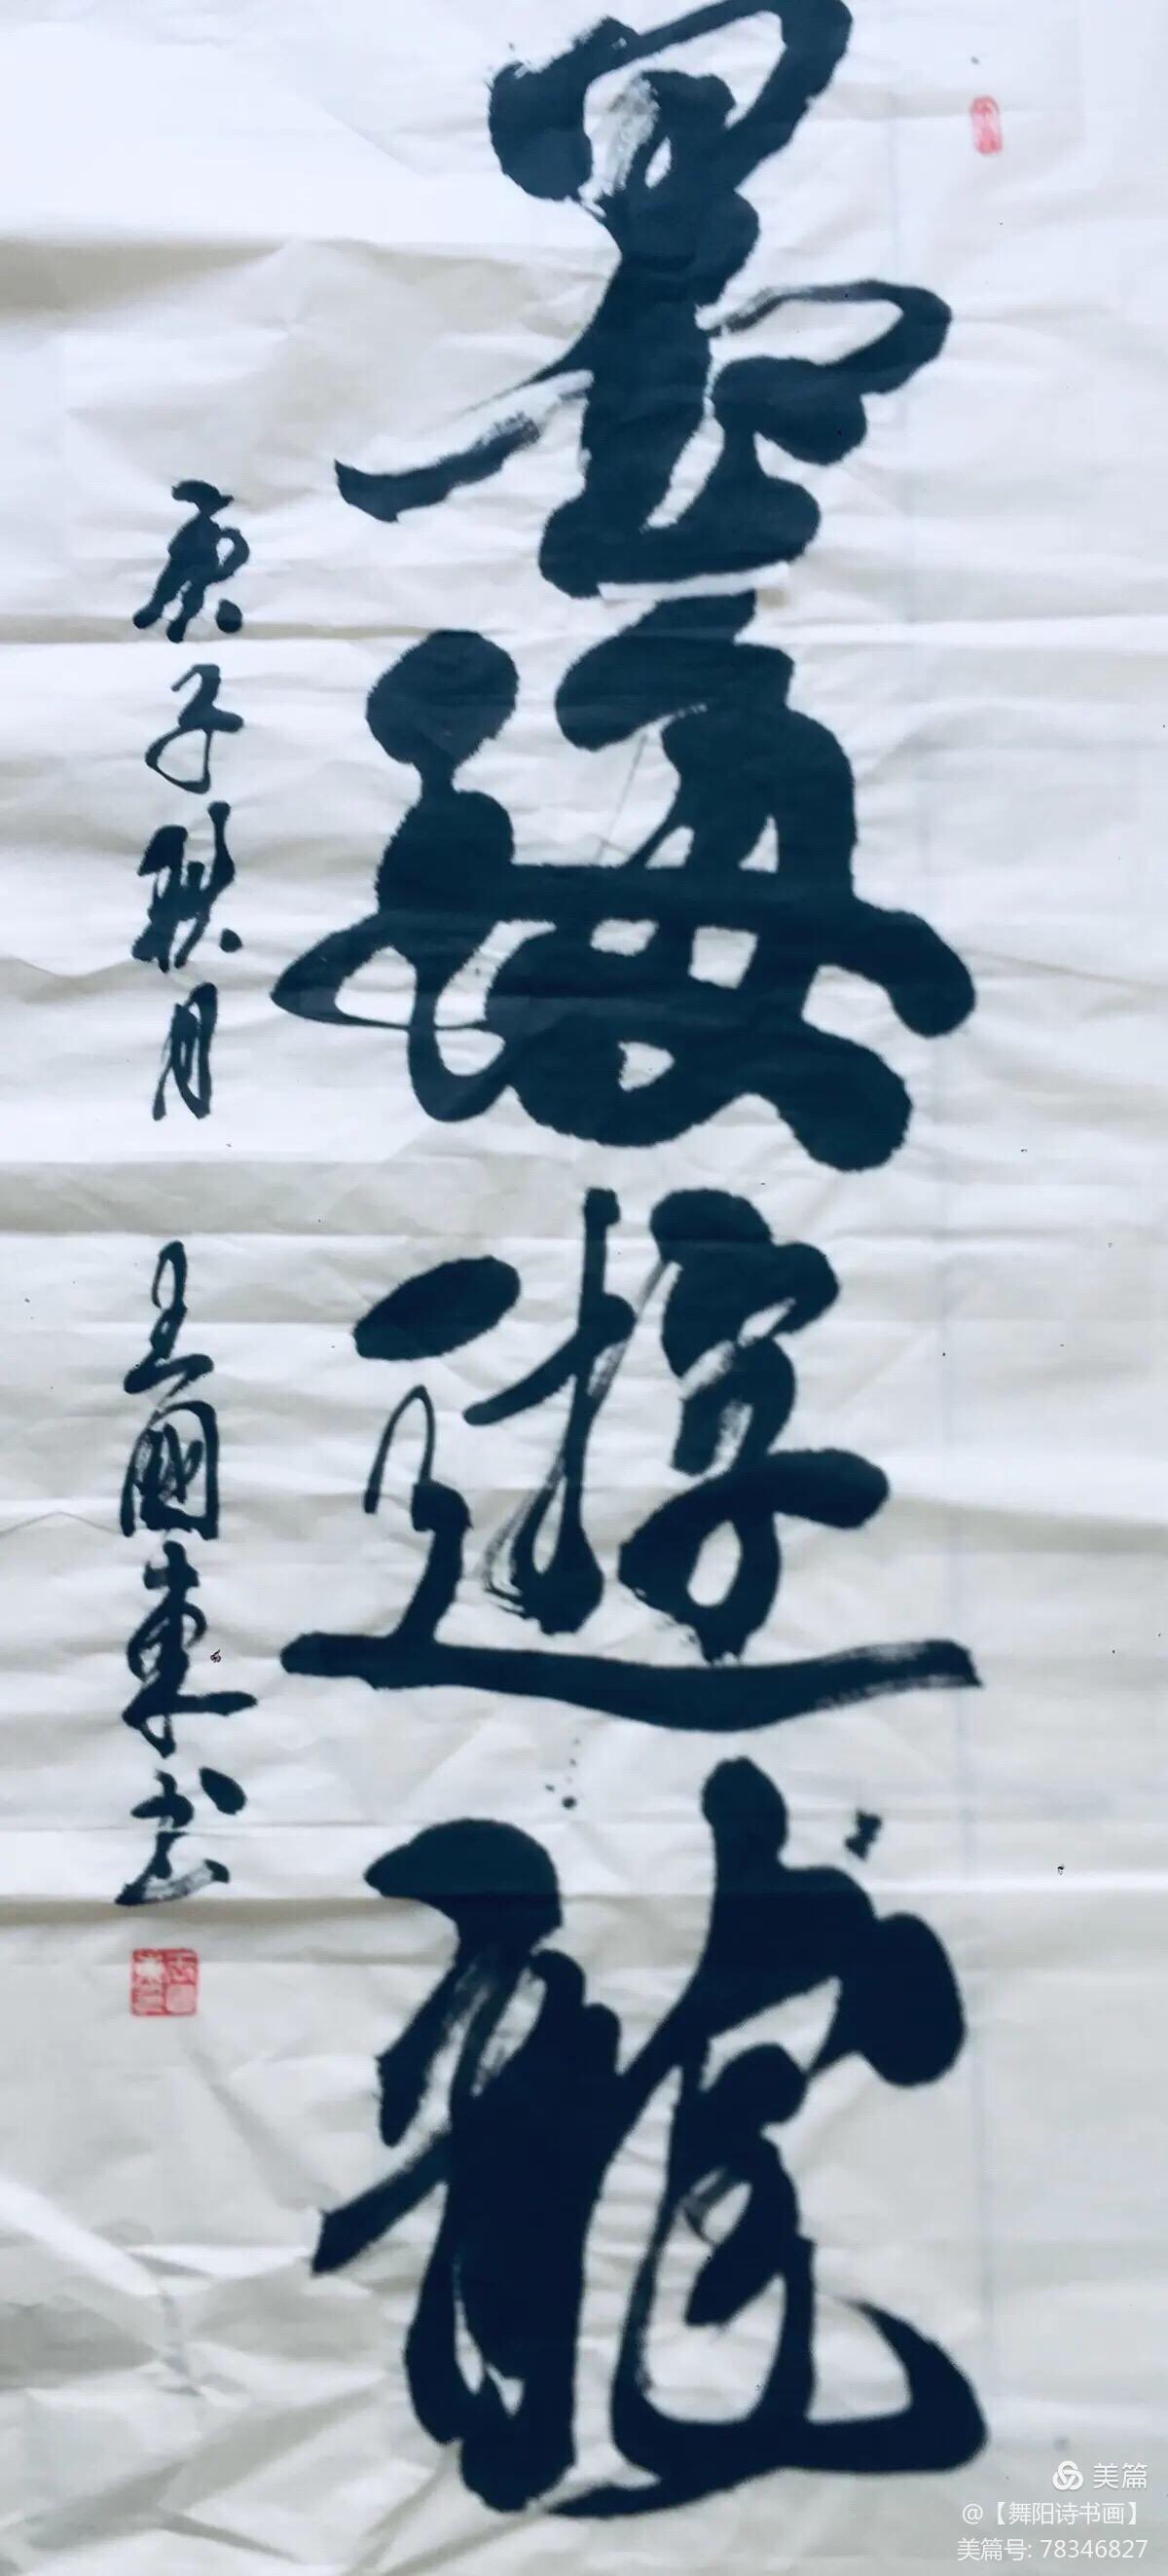 墨海遊龍
庚子秋月 王國東书
美篇
@【舞阳诗书画】
美篇号: 78346827